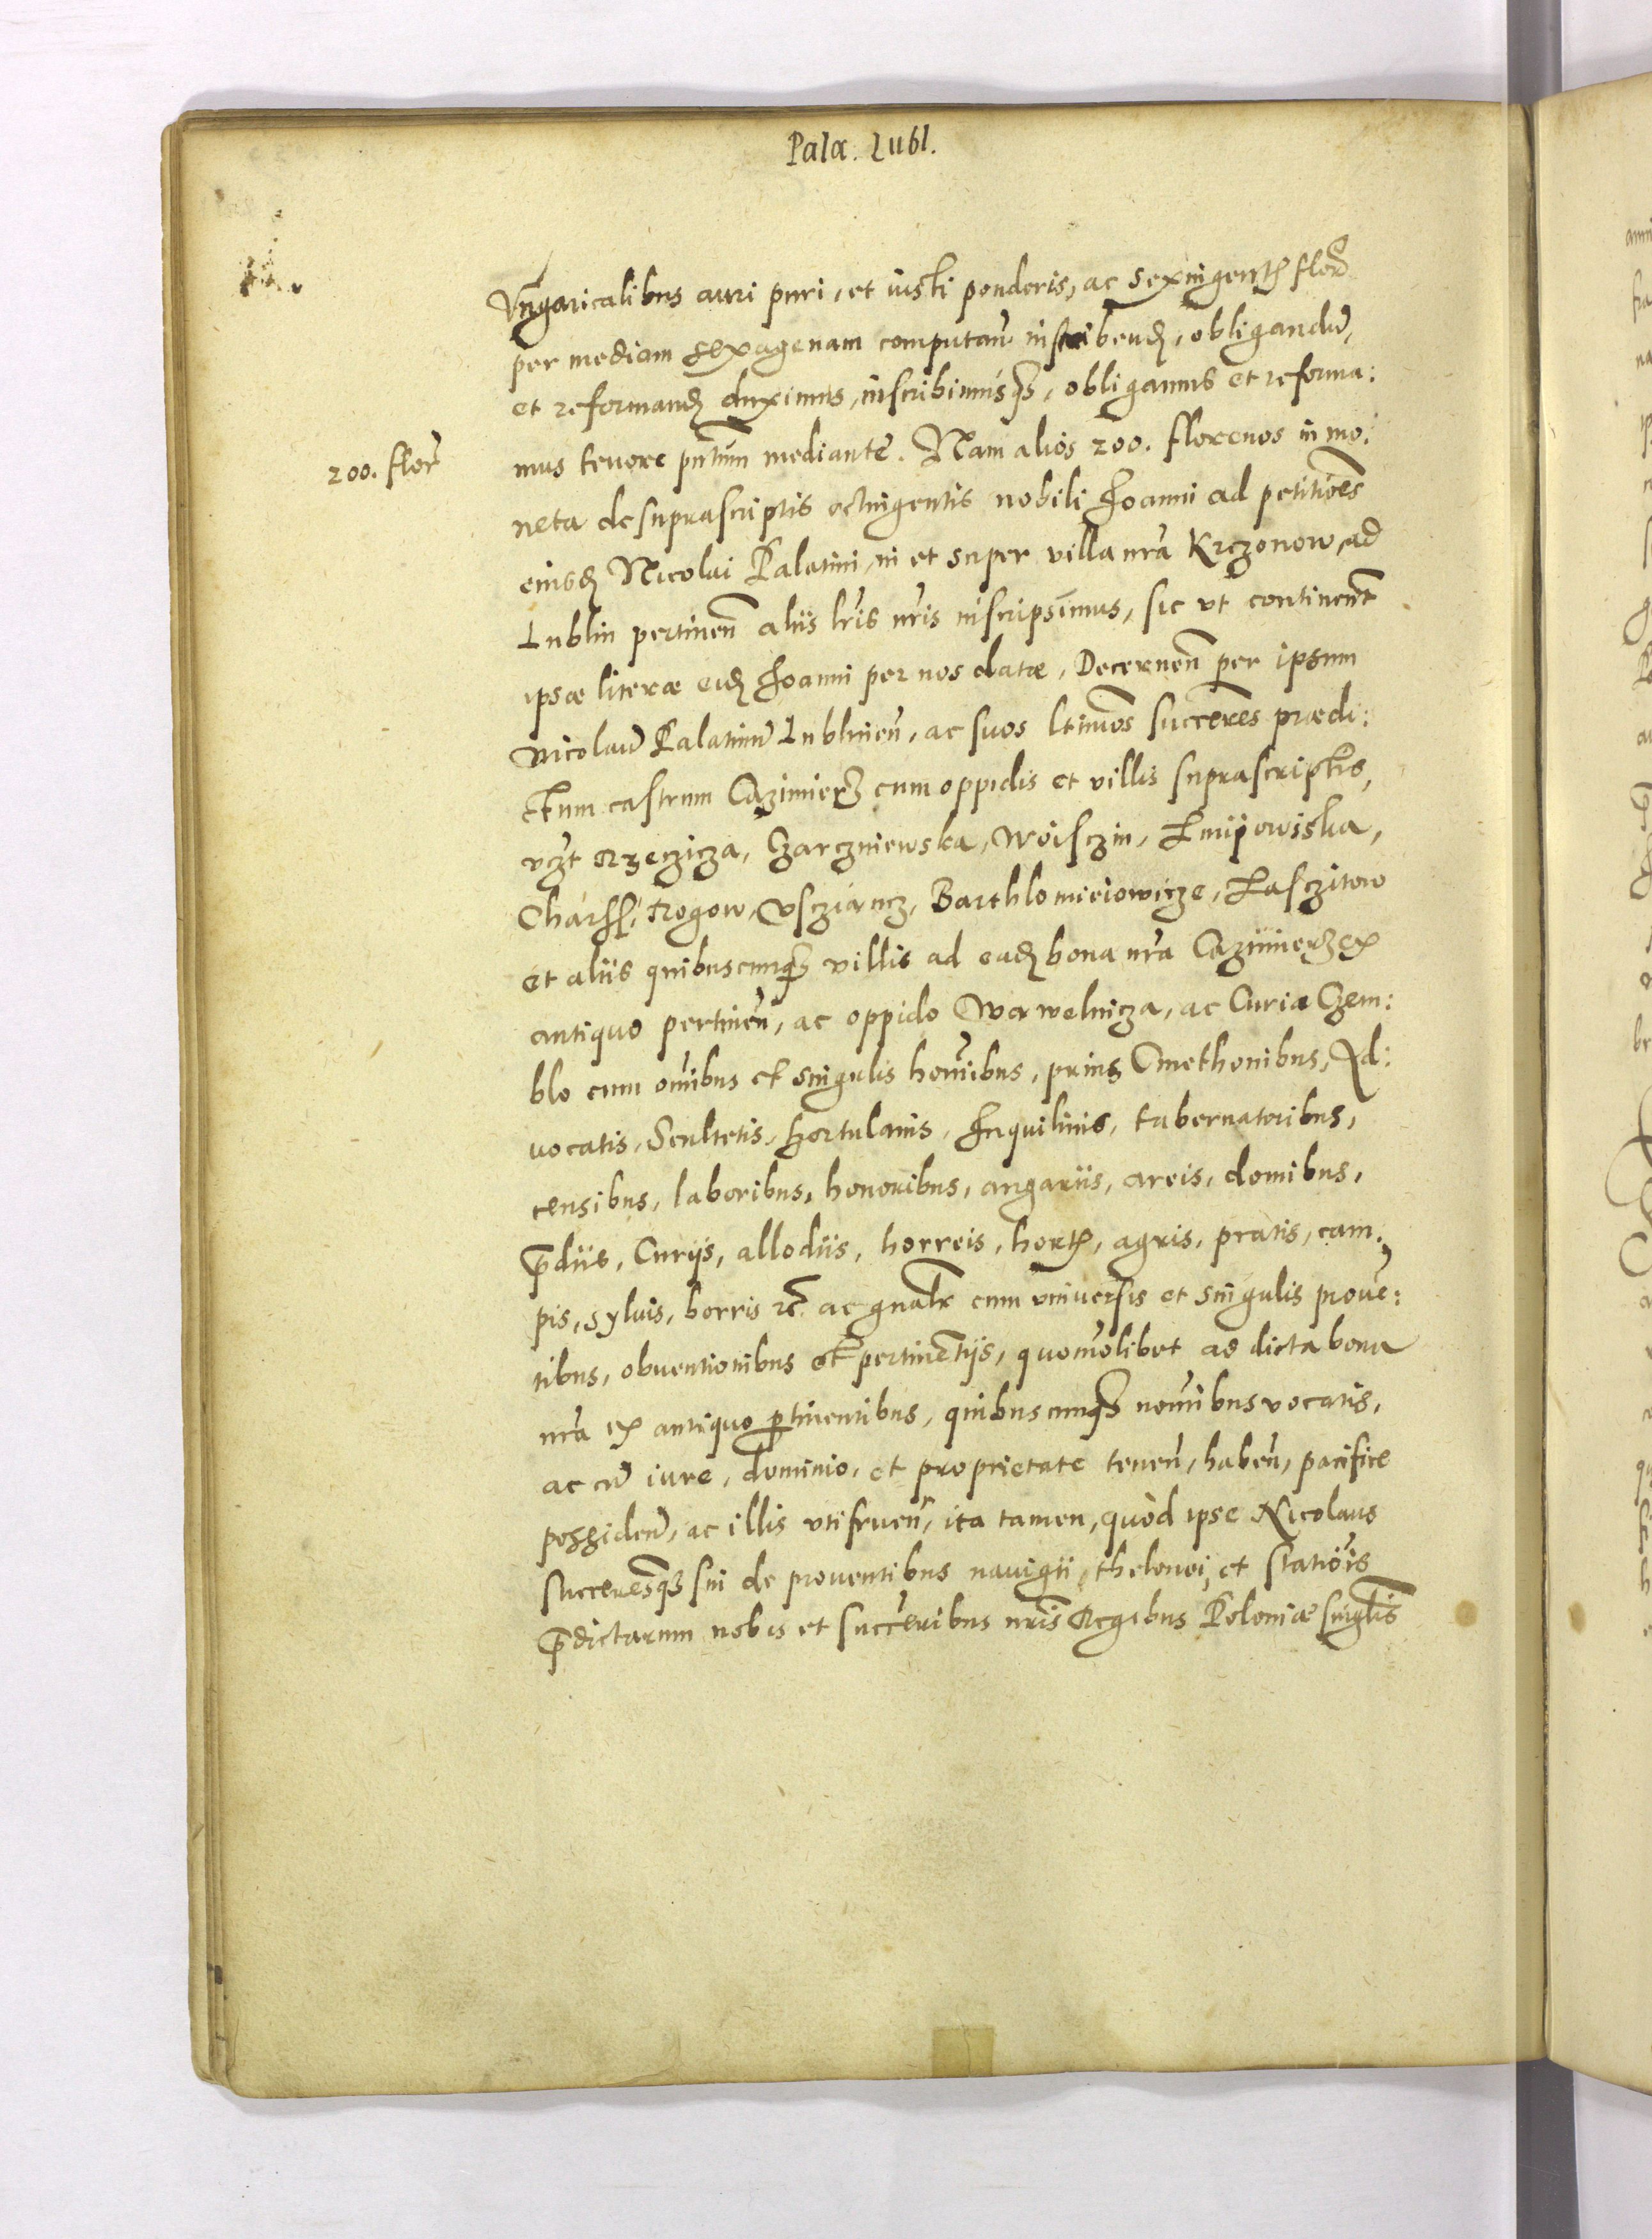 Pala. Lubl.
Vngaricalibus auri puri, et iusti ponderis, ac sexingentꝭ flor̃
per mediam sexagenam computan̄ inscribendꝫ, obligandū,
et reformandꝫ duximus, inscribimusqꝫ, obligamus et reforma:
200. flor̃
mus tenore pn̄tium mediante. Nam alios 200. florenos in mo:
neta de suprascriptis octingentis nobili Joanni ad petitiões
eiusdꝫ Nicolai Palatini, in et super villa nr̃a Krczonow, ad
Lublin pertinen̄ aliis lr̃is nr̃is inscripsimus, sic vt continent̃
ipsæ literæ eidꝫ Joanni per nos datæ, Decernen̄ per ipsum
Nicolaū Palatinū Lublinen̄, ac suos lt̃imos succẽres prædi:
ctum castrum Cazimierz cum oppidis et villis suprascriptis,
vczt Rzeczicza, Czarczniewska, Woisczin, Lmijowiska,
Charss, Rogow, Vscziancz, Barthlomieiowicze, Lasczitow
et aliis quibuscunqꝫ villis ad eadꝫ bona nr̃a Cazimierz ex
antiquo pertinen̄, ac oppido Wawelnicza, ac Curia Czem:
blo cum om̃ibus et singulis hom̃ibus, prius Cmethonibus, Ad:
uocatis, Scultetis, hortulanis, Inquilinis, tabernatoribus,
censibus, laboribus, honoribus, angariis, areis, domibus,
p̄diis, Curijs, allodiis, horreis, hortꝭ, agris, pratis, cam:
pis, syluis, borris ꝛc̃ ac gnalr̃ cum vniuersis et singulis proue:
tibus, obuentionibus et pertinētijs, quomõlibet ad dicta bona
nr̃a ex antiquo ꝑtinentibus, quibuscunqꝫ nom̃ibus vocatis,
ac cū iure, dominio, et proprietate tenen̄, haben̄, pacifice
possiden̄, ac illis vtifruen̄, ita tamen, quòd ipse Nicolaus
succeresqꝫ sui de prouentibus nauigii, thelonei, et statiõis
p̄dictarum nobis et succẽribus nr̃is Regibus Poloniæ singl̃is